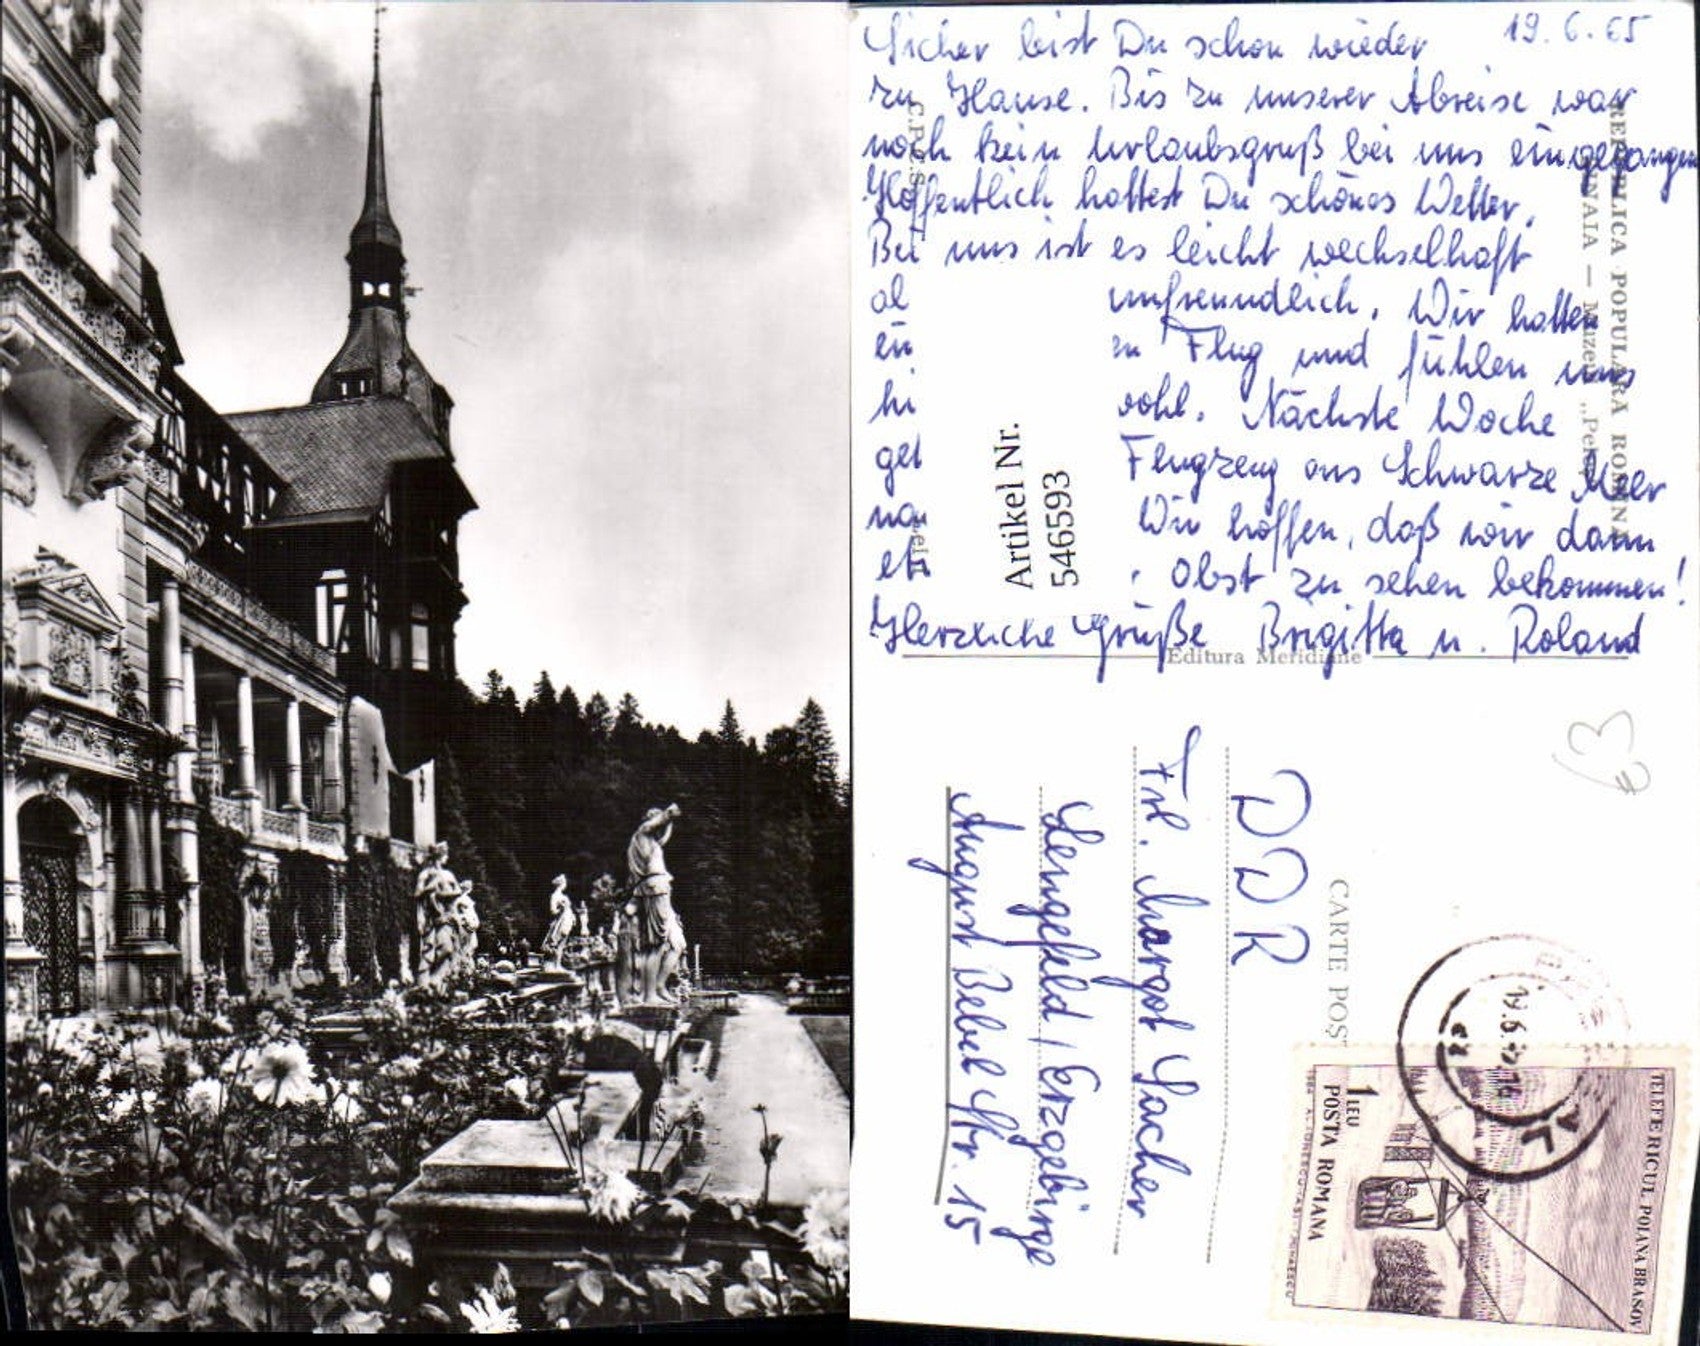 19.6.65
Sicher bist Du schon wieder
zu Hause. Bis zu unserer Abreise war
noch kein Urlaubsgruß bei uns eingegangen
Hoffentlich hattest Du schönes Wetter.
Bei uns ist es leicht wechselhaft
unfreundlich. Wir hatten
Flug und fühlen uns
wohl. Nächste Woche
Flugzeug ans Schwarze Meer
Wir hoffen, daß wir dann
Obst zu sehen bekommen!
Herzliche Grüße Brigitta u. Roland
Artikel Nr.
546593
REPUBLICA POPULARA ROMINA
SINAIA — Muzeul „Peleş
Editura Meridiane
CARTE POŞ
DDR
Frl. Margot Sacher
Lengefeld / Erzgebirge
August Bebel Str. 15
€3
TELEFERICUL POIANA BRAȘOV
1 LEU
POSTA ROMANA